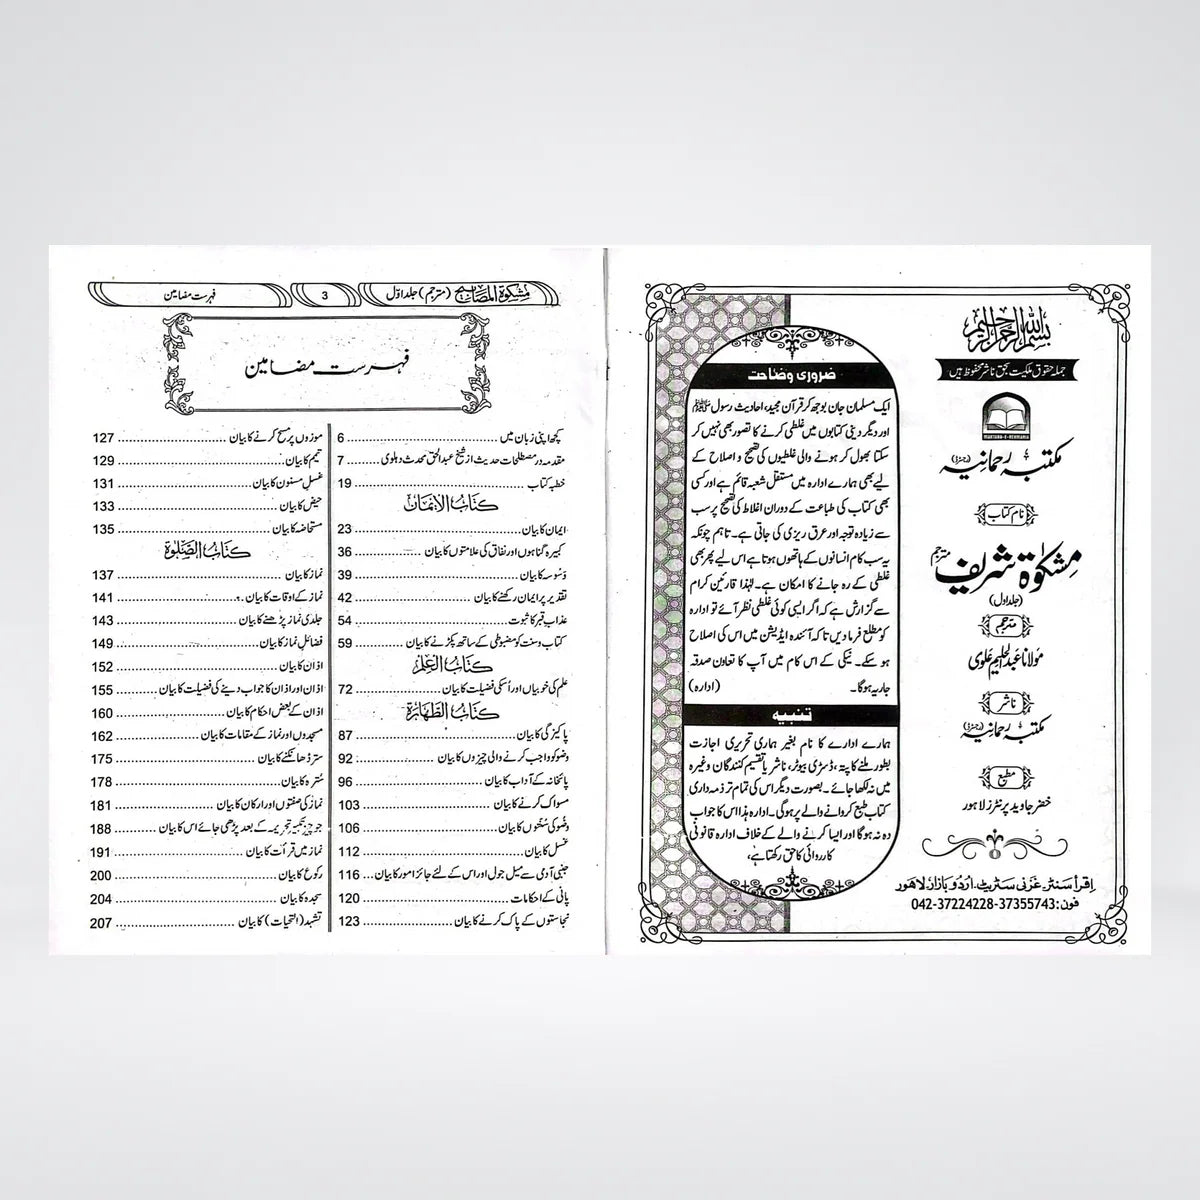 بسم الله الرحمن الرحيم
جملہ حقوق ملکیت بحق ناشر محفوظ ہیں
MAKTABA-E-REHMANIA
مکتبہ رحمانیہ (رجسٹرڈ)
نام کتاب
مشکوٰۃ شریف مترجم
(جلد اول)
مترجم
مولانا عبدالحلیم علوی
ناشر
مکتبہ رحمانیہ (رجسٹرڈ)
مطبع
خضر جاوید پرنٹرز لاہور
اقرأ سنٹر غزنی سٹریٹ۔ اُردُو بازار لاھور
فون: 042-37224228-37355743
ضروری وضاحت
ایک مسلمان جان بوجھ کر قرآن مجید، احادیث رسول ﷺ
اور دیگر دینی کتابوں میں غلطی کرنے کا تصور بھی نہیں کر
سکتا بھول کر ہونے والی غلطیوں کی تصحیح و اصلاح کے
لیے بھی ہمارے ادارہ میں مستقل شعبہ قائم ہے اور کسی
بھی کتاب کی طباعت کے دوران اغلاط کی تصحیح پر سب
سے زیادہ توجہ اور عرق ریزی کی جاتی ہے۔ تاہم چونکہ
یہ سب کام انسانوں کے ہاتھوں ہوتا ہے اس لیے پھر بھی
غلطی کے رہ جانے کا امکان ہے۔ لہٰذا قارئین کرام
سے گزارش ہے کہ اگر ایسی کوئی غلطی نظر آئے تو ادارہ
کو مطلع فرما دیں تاکہ آئندہ ایڈیشن میں اس کی اصلاح
ہو سکے۔ نیکی کے اس کام میں آپ کا تعاون صدقہ
جاریہ ہوگا۔ (ادارہ)
تنبیہ
ہمارے ادارے کا نام بغیر ہماری تحریری اجازت
بطور ملنے کا پتہ، ڈسڑی بیوٹر، ناشر یا تقسیم کنندگان وغیرہ
میں نہ لکھا جائے۔ بصورت دیگر اس کی تمام تر ذمہ داری
کتاب طبع کروانے والے پر ہوگی۔ ادارہ ہذا اس کا جواب
دہ نہ ہوگا اور ایسا کرنے والے کے خلاف ادارہ قانونی
کارروائی کا حق رکھتا ہے،
مشکوٰۃ المصابیح (مترجم) جلد اوّل 3 فہرست مضامین
فہرست مضامین
کچھ اپنی زبان میں 6
مقدمہ در مصطلحات حدیث از شیخ عبدالحق محدث دہلوی 7
خطبہ کتاب 19
کتاب الایمان
ایمان کا بیان 23
کبیرہ گناہوں اور نفاق کی علامتوں کا بیان 36
وسوسہ کا بیان 39
تقدیر پر ایمان رکھنے کا بیان 42
عذاب قبر کا ثبوت 54
کتاب وسنت کو مضبوطی کے ساتھ پکڑنے کا بیان 59
کتاب العلم
علم کی خوبیاں اور اُسکی فضیلت کا بیان 72
کتاب الطهارة
پاکیزگی کا بیان 87
وضو کو واجب کرنے والی چیزوں کا بیان 92
پائخانہ کے آداب کا بیان 96
مسواک کرنے کا بیان 103
وضو کی سنتوں کا بیان 106
غسل کا بیان 112
جنبی آدمی سے میل جول اور اس کے لئے جائز امور کا بیان 116
پانی کے احکامات 120
نجاستوں کے پاک کرنے کا بیان 123
موزوں پر مسح کرنے کا بیان 127
تیمم کا بیان 129
غسل مسنون کا بیان 131
حیض کا بیان 133
مستحاضہ کا بیان 135
کتاب الصلوٰۃ
نماز کا بیان 137
نماز کے اوقات کا بیان 141
جلدی نماز پڑھنے کا بیان 143
فضائل نماز کا بیان 149
اذان کا بیان 152
اذان اور اذان کا جواب دینے کی فضیلت کا بیان 155
اذان کے بعض احکام کا بیان 160
مسجدوں اور نماز کے مقامات کا بیان 162
ستر ڈھانکنے کا بیان 175
سُترہ کا بیان 178
نماز کی صفتوں اور ارکان کا بیان 181
جو چیز تکبیر تحریمہ کے بعد پڑھی جائے اس کا بیان 188
نماز میں قرأت کا بیان 191
رکوع کا بیان 200
سجدہ کا بیان 204
تشہد (التحیات) کا بیان 207